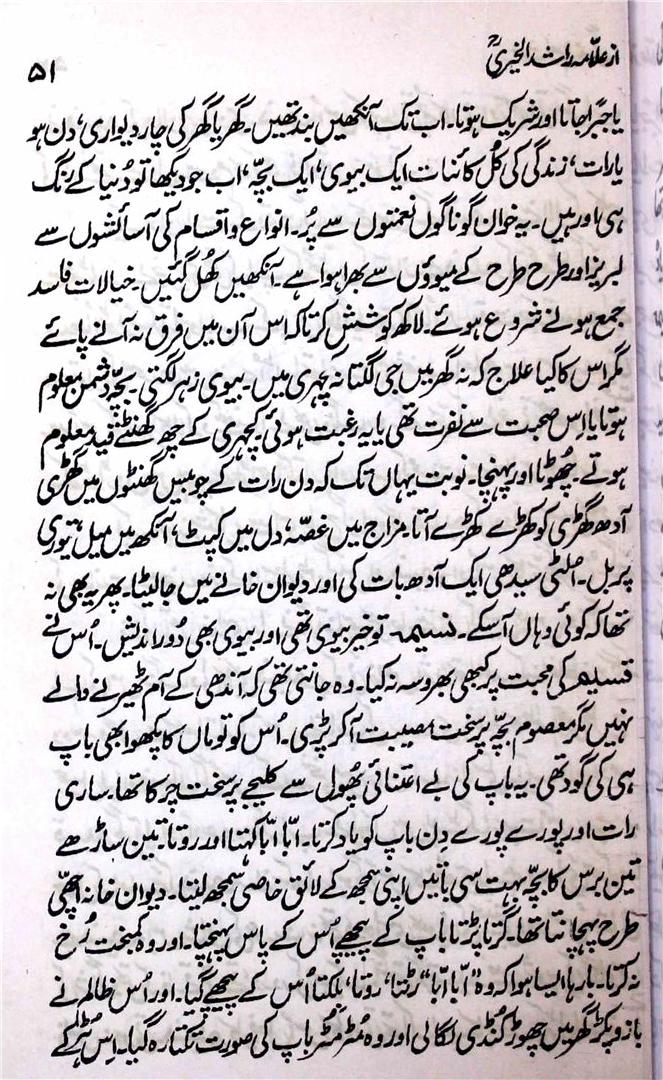 از علامہ راشد الخیریؒ
۵۱
یا جبراً جاتا اور شریک ہوتا۔ اب تک آنکھیں بند تھیں۔ گھر یا گھر کی چار دیواری، دن ہو
یا رات، زندگی کی کُل کائنات ایک بیوی، ایک بچّہ، اب جو دیکھا تو دُنیا کے رنگ
ہی اور ہیں۔ یہ خوان گوناگوں نعمتوں سے پُر۔ انواع و اقسام کی آسائشوں سے
لبریز اور طرح طرح کے میوؤں سے بھرا ہوا ہے۔ آنکھیں کھُل گئیں۔ خیالات فاسد
جمع ہونے شروع ہوئے۔ لاکھ کوشش کرتا کہ اس آن میں فرق نہ آنے پائے
مگر اس کا کیا علاج کہ نہ گھر میں جی لگتا نہ کچہری میں۔ بیوی زہر لگتی۔ بچّہ دشمن معلوم
ہوتا یا اِس صحبت سے نفرت تھی یا یہ رغبت ہوئی۔ کچہری کے چھ گھنٹے قید معلوم
ہوتے۔ چھُوٹا اور پہنچا۔ نوبت یہاں تک کہ دن رات کے چوبیس گھنٹوں میں گھڑی
آدھ گھڑی کو کھڑے کھڑے آتا۔ مزاج میں غصّہ، دل میں کپٹ، آنکھ میں میل، تیوری
پر بل۔ اُلٹی سیدھی ایک آدھ بات کی اور دیوان خانے میں جا لیٹا۔ پھر یہ بھی نہ
تھا کہ کوئی وہاں آ سکے۔ نسیمہ تو خیر بیوی تھی اور بیوی بھی دُور اندیش۔ اُس نے
قسیم کی محبت پر کبھی بھروسہ نہ کیا۔ وہ جانتی تھی کہ آندھی کے آم ٹھیرنے والے
نہیں مگر معصوم بچّہ پر سخت مصیبت آ کر پڑی۔ اُس کو تو ماں کا پکھوا بھی باپ
ہی کی گود تھی۔ یہ باپ کی بے اعتنائی پھُول سے کلیجے پر سخت چرکا تھا۔ ساری
رات اور پورے پورے دِن باپ کو یاد کرتا۔ ابّا ابّا کہتا اور روتا۔ تین ساڑھے
تین برس کا بچّہ بہت سی باتیں اپنی سمجھ کے لائق خاصی سمجھ لیتا۔ دیوان خانہ اچھّی
طرح پہچانتا تھا۔ گرتا پڑتا باپ کے پیچھے اُس کے پاس پہنچتا۔ اور وہ کمبخت رُخ
نہ کرتا۔ بارہا ایسا ہوا کہ وہ "ابّا ابّا" رٹتا، روتا، بلکتا اُس کے پیچھے گیا۔ اور اُس ظالم نے
بازو پکڑ گھر میں چھوڑ کنڈی لگا لی اور وہ مُٹر مُٹر باپ کی صورت تکتا رہ گیا۔ اِس ہُڑکے